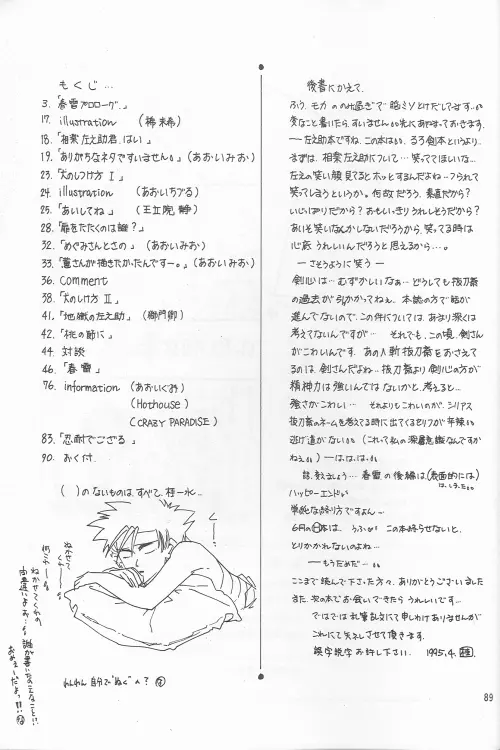 もくじ…
3.「春雷プロローグ.」
17. illustration （楠 未希）
18.「相楽左之助君.はい」
19.「ありがちなネタですいません。」（あおいみお）
23.「犬のしつけ方 Ⅰ」
24. illustration （あおいちづる）
25.「あいしてね」（王立院 静）
28.「扉をたたくのは誰?」
32.「めぐみさんとさの」（あおいみお）
33.「蒼さんが描きたかったんですー。」（あおいみお）
36. Comment
38.「犬のしつけ方 Ⅱ」
41.「地獄の左之助」（御門卿）
42.「桃の節に」
44. 対談
46.「春雷」
76. information （あおいくみ）
（Hothouse）
（CRAZY PARADISE）
83.「忍耐でござる」
90. おく付.
（ ）のないものは、すべて、柊一水..
ねかせて
くれーっ
ねかせてくれの
間違いよぉ…
誰が書いたのこんなこと…
おめぇーだよっ!!!
わんわん 自分で"ぬぐ"へ?
後書にかえて.
ふう. モカののみ過ぎで脳ミソとけだしてます…
変なこと書いたら.すいません。先にあやまっておきます.
―左之助本ですね.この本は…. るろ剣本というより..
まずは. 相楽左之助について…笑っててほしいな…
左之の笑い顔見てるとホッとするんだよね…フられて
笑ってしまうというか。何故だろう. 素直だから?
いじっぱりだから? おもいっきりうれしそうだから?
あいそ笑いなんかしないだろうから. 笑ってる時は
心底うれしいんだろうと思えるから…。
―さそうように笑う―
剣心は…むずかしいなぁ…どうしても抜刀斎
の過去が引っかかってねぇ. 本誌の方で話が
進んでないので. この件については. あまり深くは
考えてないんですが… それでも. この頃. 剣さん
がこわいんです. あの人斬抜刀斎をおさえて
るのは. 剣さんだよね… 抜刀斎より剣心の方が
精神力は強いんではないかと. 考えると…
強さがこわい… それよりもこわいのが. シリアス
抜刀斎のネームを考えてる時に出てくるセリフが辛辣…
逃げ道がない。（これって私の深層意識なんですか
ねぇ。）―は.は.は.。
話. 変えましょう… 春雷の後編は（表面的には）
ハッピーエンド…
単純な終り方ですよん~
6月の本は. うふっ この本終らせないと.
とりかかれないのよね…
―もうだめだ―…
ここまで読んで下さった方々. ありがとうございました
また. 次の本でお会いできたらうれしいです…
ではでは乱筆乱文にて申しわけありませんが
これにて失礼させて頂きます.
誤字脱字お許し下さい. 1995.4.
89